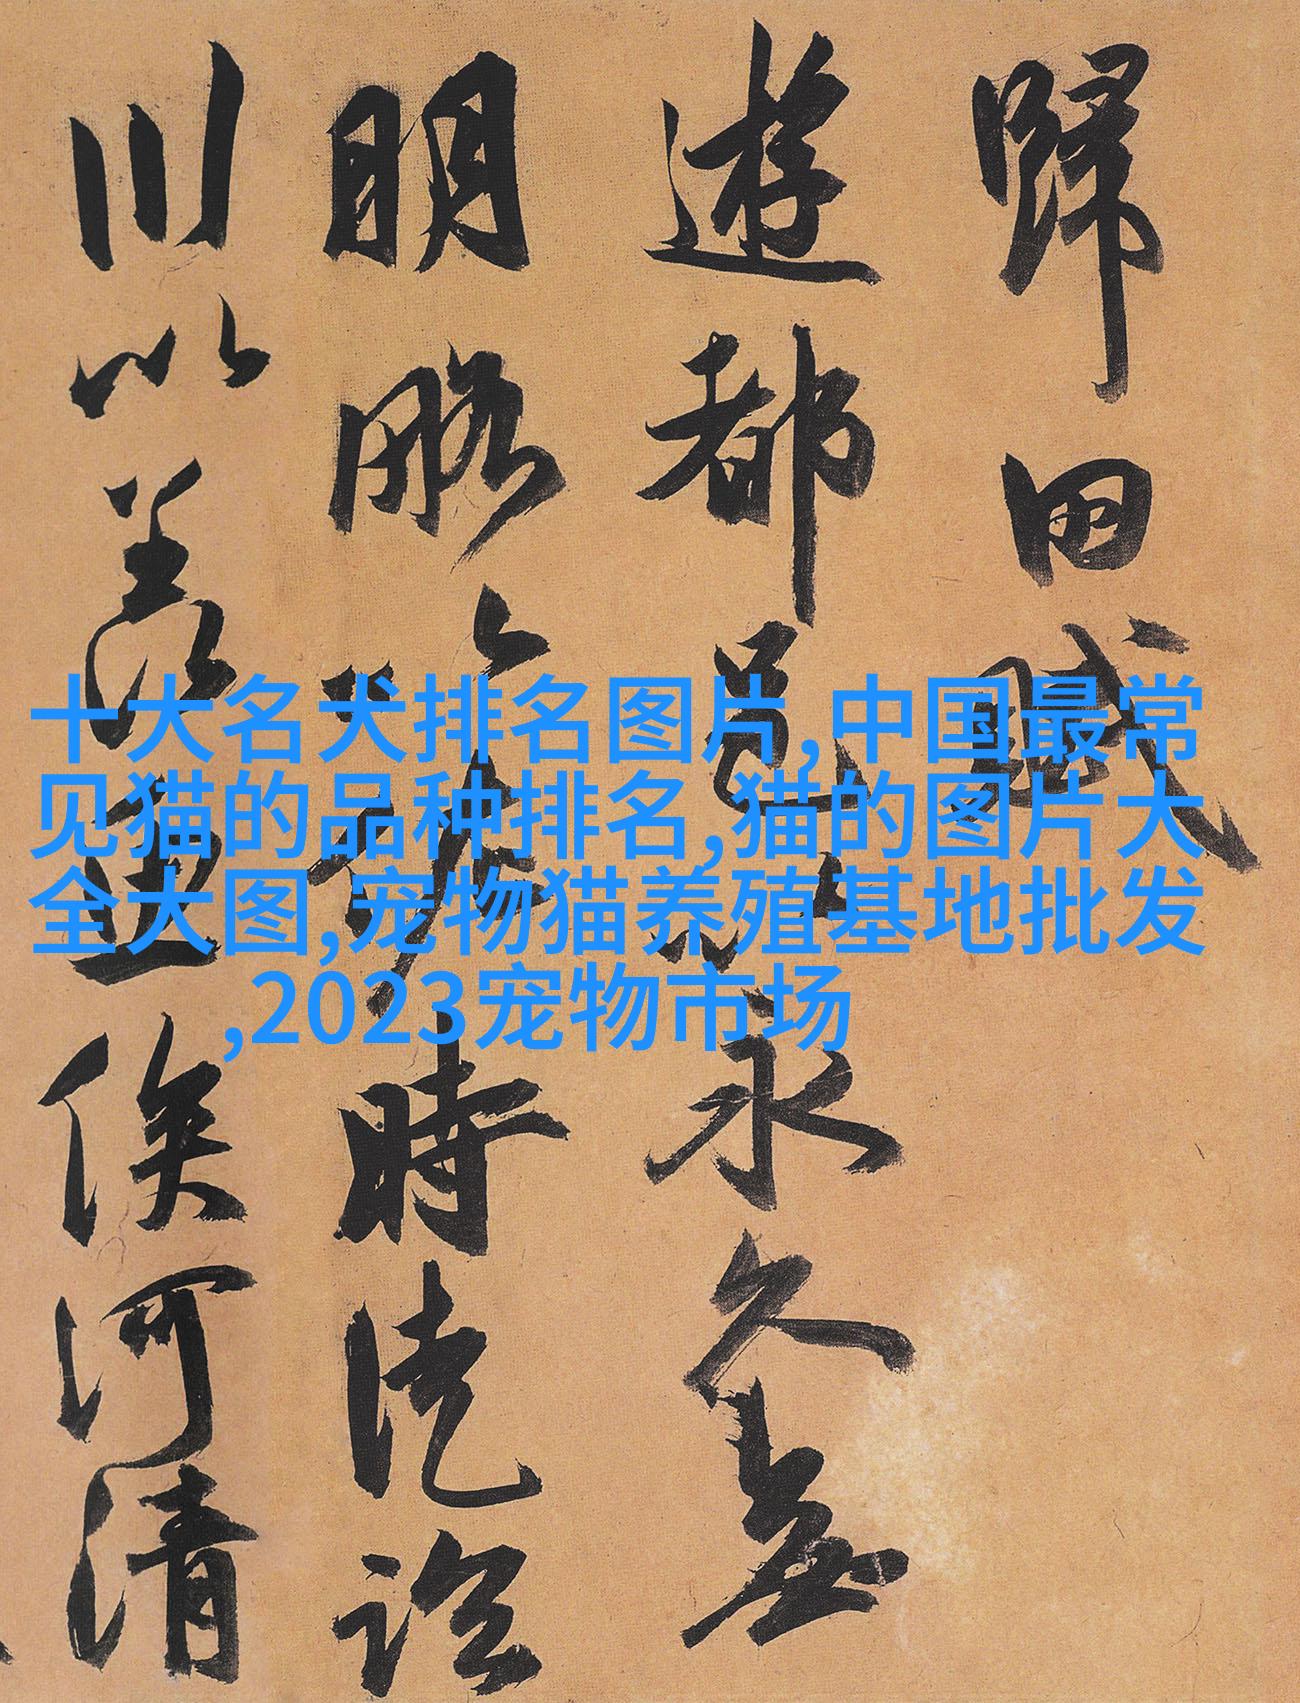 歸田賦
遊都邑以永久無
明略以佐時徒臨
川以羡魚俟河清
十大名犬排名图片,中国最常
见猫的品种排名,猫的图片大
全大图,宠物猫养殖基地批发
,2023宠物市场